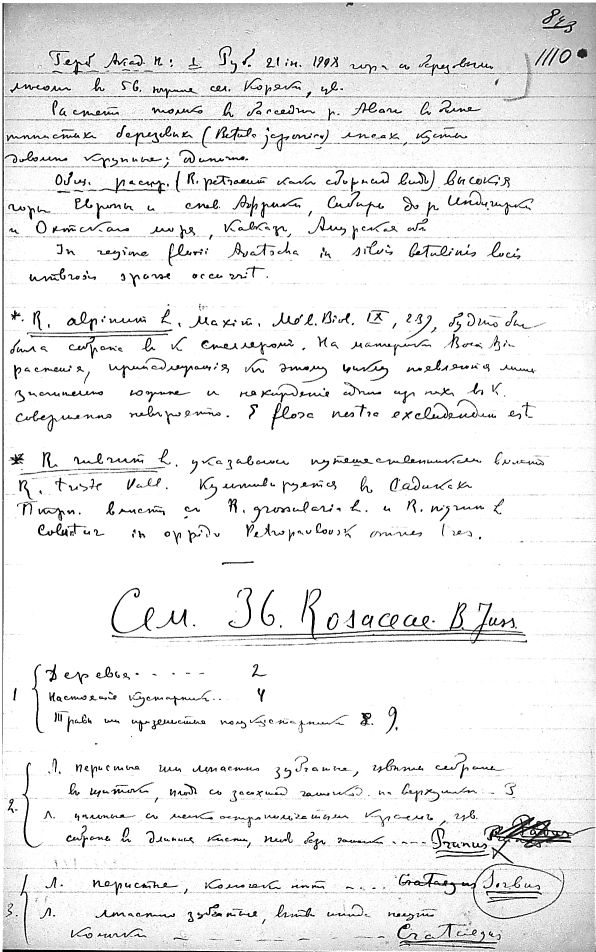 843
1110
Герб Акад Н: 1 Руб. 21 in. 1908 гора с березовым
лесом в 5 в. южнее сел. Коряки, цв.
Растет только в бассейне р. Авачи в
березовых (Betula japonica) лесах, кусты
довольно крупные; одиночно.
Общ. распр. (R. petraeum как сборный вид) высокия
горы Европы и сев. Африки, Сибирь до р. Индигирки
и Охтскаго моря, Кавказ, Амурская об
In regione fluvii Avatscha in silvis betulinis locis
umbrosis sparse occurrit.
* R. alpinum L. Maxim. Mél. Biol. IX, 239, будто бы
была собрана в К Стеллером. На материке Вост.
растения, принадлежащия к этому циклу появляются лишь
значительно южнее и нахождение одного из них в К.
совершенно невероятно. E flora nostra excludendum est
* R. rubrum L. указывался путешественниками вместо
R. triste Pall. Культивируется в садиках
Птрп. вместе с R. grossularia L. и R. nigrum L
Coluntur in oppido Petropavlovsk omnes tres.
Сем. 36. Rosaceae B. Juss.
1 Деревья - - - - - 2
Настоящие кустарники.. 4
Травы или приземистые полукустарники 9.
2. Л. перистые или лопастные зубчатые, цветы собраны
в щитки, плод с засохшей чашечкой на верхушке .. 3
Л. цельные с мелко краем, цв.
собраны в длинные кисти, плод без чашечки ---- Prunus
3. Л. перистые, колючек нет - ... Crataegus Sorbus
Л. лопастные зубчатые, ветви иногда несут
колючки - - - - - - Crataegus